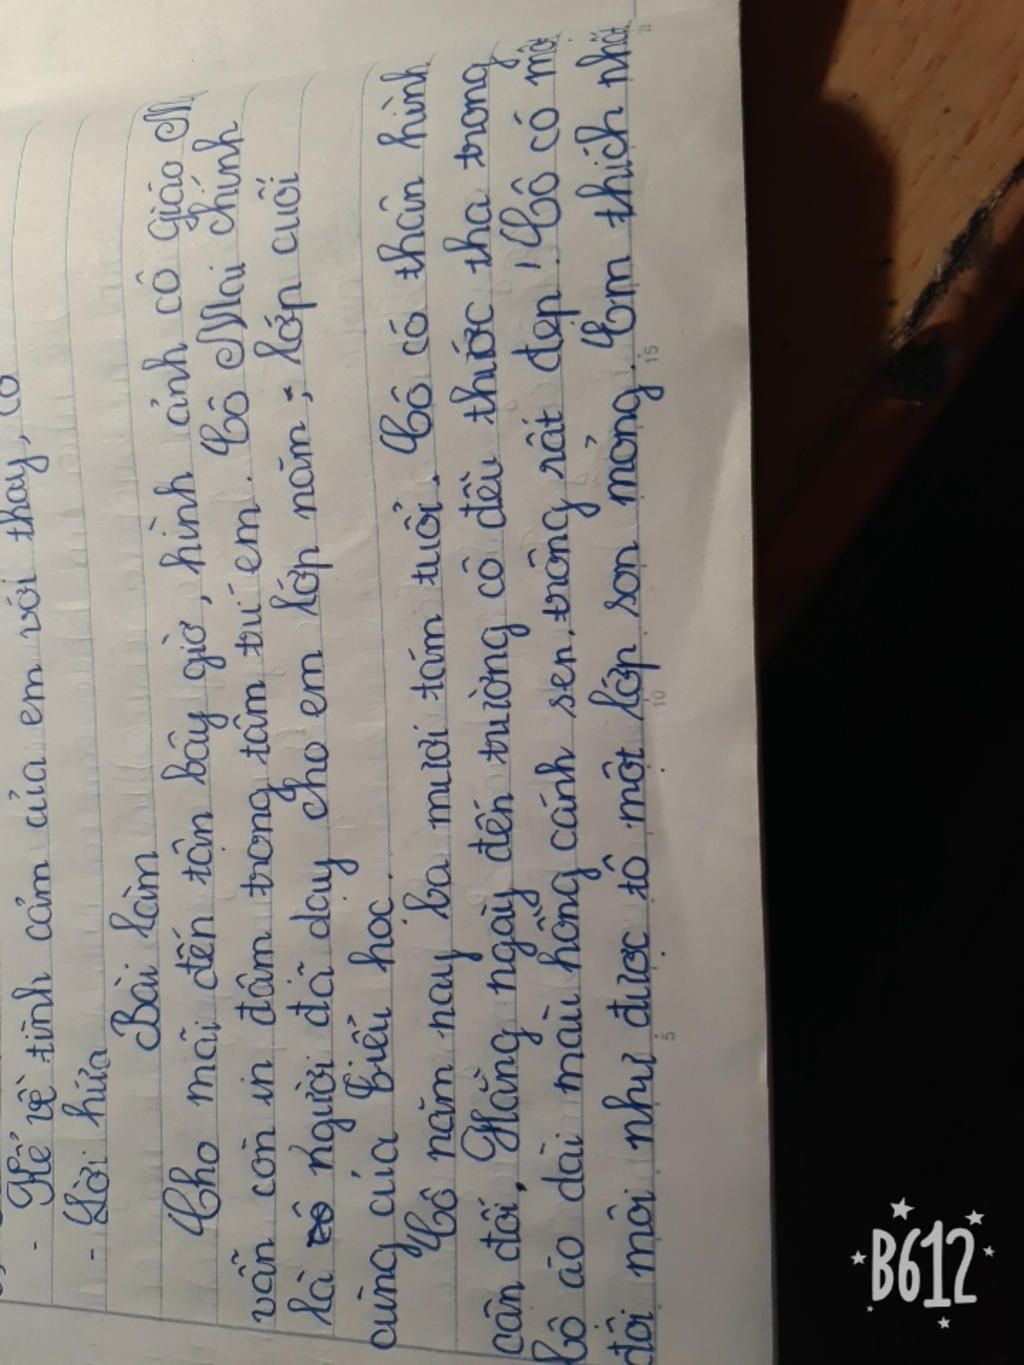 - Kể về tình cảm của em với thầy, cô
- Lời hứa
Bài làm
Cho mãi đến tận bây giờ, hình ảnh cô giáo
vẫn còn in đậm trong tâm trí em. Cô Mai chính
là cô người đã dạy cho em lớp năm, lớp cuối
cùng của tiểu học.
Cô năm nay ba mươi tám tuổi. Cô có thân hình
cân đối. Hằng ngày đến trường cô đều thướt tha trong
bộ áo dài màu hồng cánh sen, trông rất đẹp! Cô có một
đôi môi như được tô một lớp son mỏng. Em thích nhất
5 10 15 20
B612